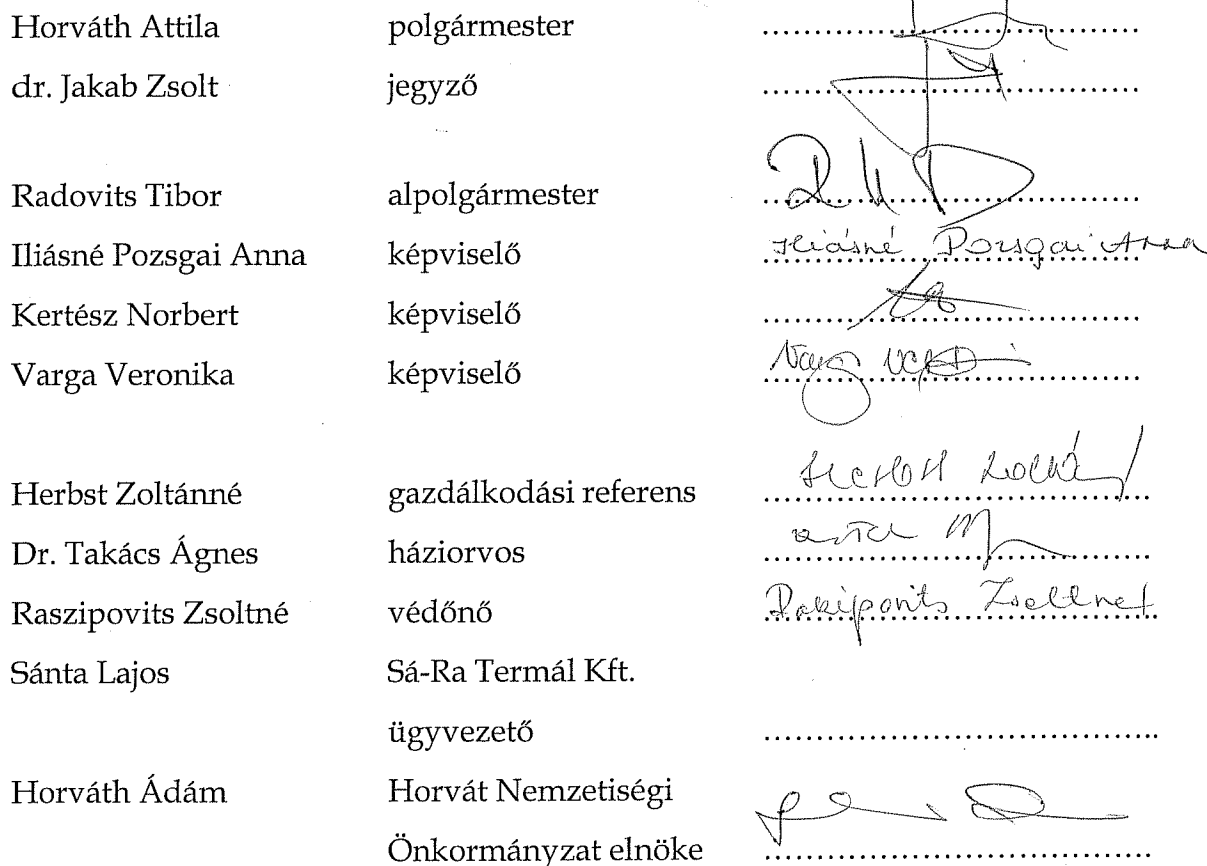 Horváth Attila polgármester ........................................
dr. Jakab Zsolt jegyző ........................................
Radovits Tibor alpolgármester ........................................
Iliásné Pozsgai Anna képviselő Iliásné Pozsgai Anna
Kertész Norbert képviselő ........................................
Varga Veronika képviselő ........................................
Herbst Zoltánné gazdálkodási referens ........................................
Dr. Takács Ágnes háziorvos ........................................
Raszipovits Zsoltné védőnő Raszipovits Zsoltné
Sánta Lajos Sá-Ra Termál Kft.
ügyvezető ........................................
Horváth Ádám Horvát Nemzetiségi
Önkormányzat elnöke ........................................